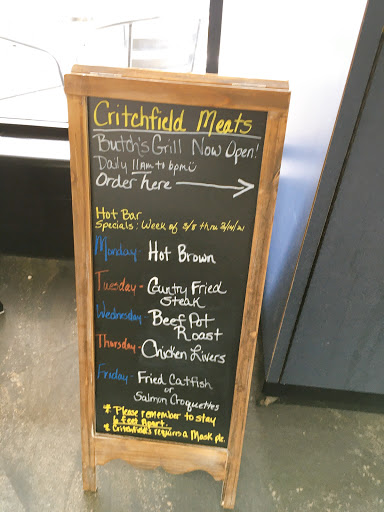 Critchfield Meats
Butch's Grill Now Open!
Daily 11am to 6pm
Order here
Hot Bar
Specials: Week of 3/8 thru
Monday: Hot Brown
Tuesday - Country Fried
Steak
Wednesday - Beef Pot
Roast
Thursday - Chicken Livers
Friday - Fried Catfish
or
Salmon Croquettes
* Please remember to stay
6 feet Apart.
* Critchfield's requires a Mask pls.